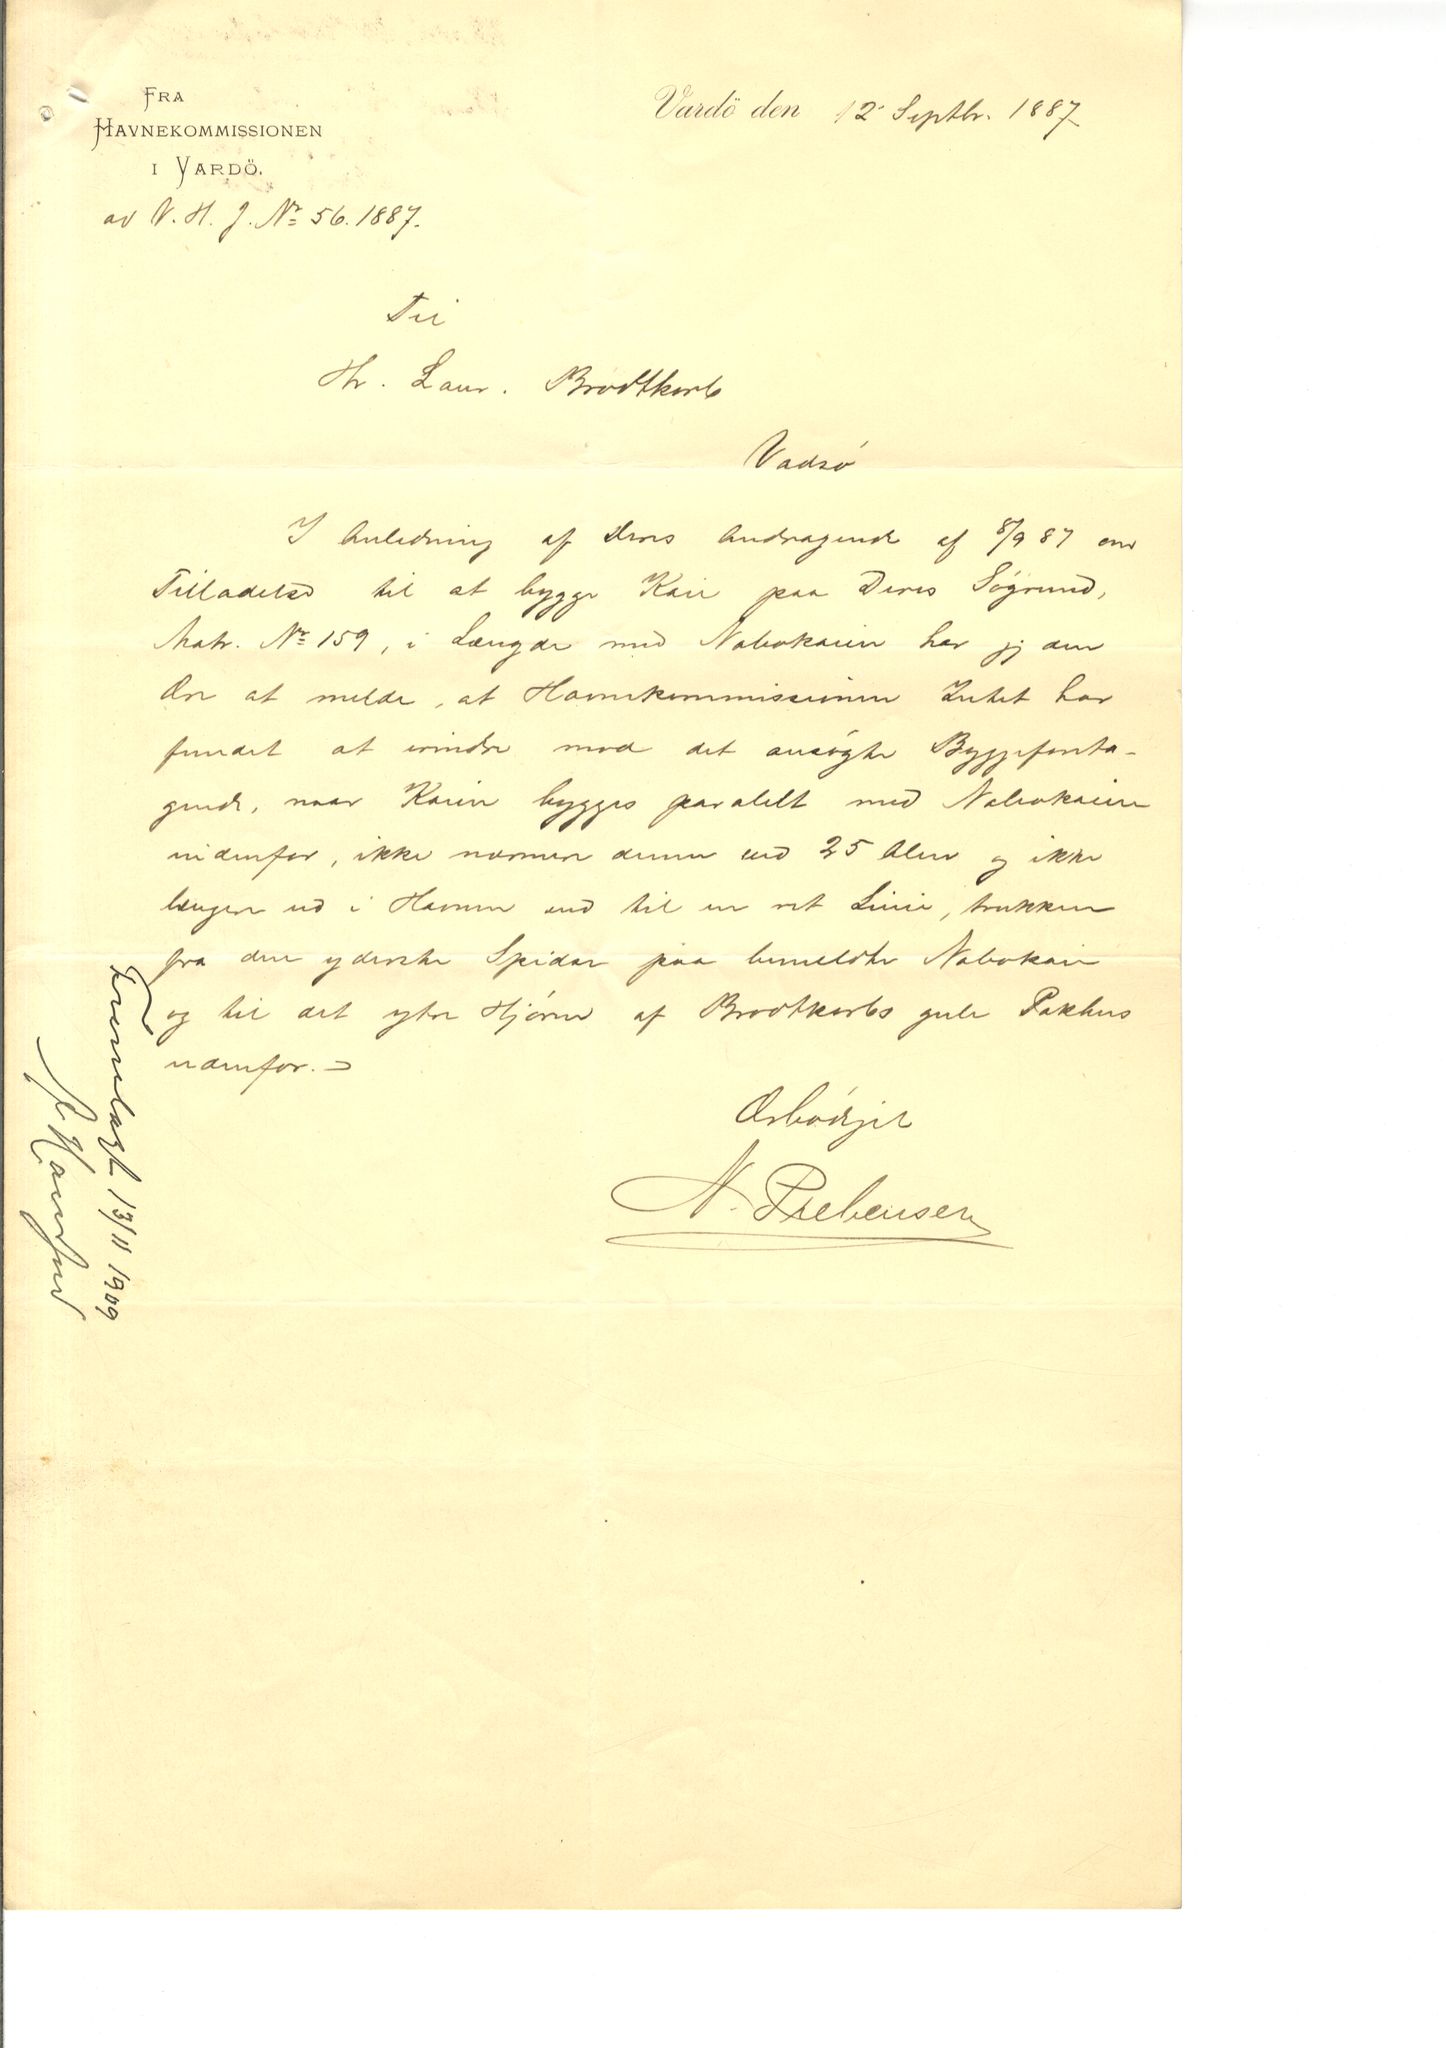 FRA
HAVNEKOMMISSIONEN
I VARDÖ.
Vardö den 12 Septbr. 1887
av V. H. J. Nr 56. 1887.
Til
Hr. Laur. Brodtkorb
Vadsö
I Anledning af Deres Andragende af 8/9 87 om
Tilladelse til at bygge Kai paa Deres Søgrund,
Matr. Nr 159, i Længde med Nabokaien har jeg den
Ære at melde, at Havnekommissionen Intet har
fundet at erindre mod det ansøgte Byggeforeta-
gende, naar Kaien bygges paralelt med Nabokaien
indenfor, ikke nærmere denne end 25 Alen og ikke
længere ud i Havnen end til en ret Linie, trukken
fra den yderste Spidse paa bemeldte Nabokai
og til det ytre Hjørne af Brodtkorbs gule Pakhus
udenfor.
Ærbødigst
N. Prebensen
Fremlagt 13/11 1909